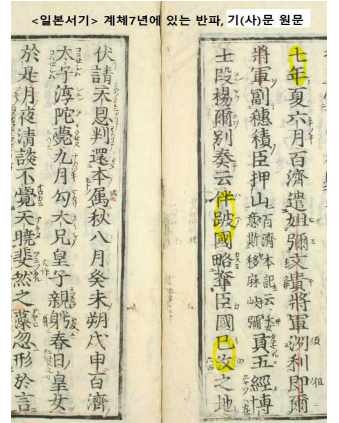 <일본서기> 계체7년에 있는 반파, 기(사)문 원문
七年夏六月百濟遣姐彌文貴將軍洲利即爾
將軍副穗積臣押山百濟本記云委意斯移麻岐彌貢五經博
士段楊爾別奏云伴跛國略奪臣國己汶之地
伏請天恩判還本属秋八月癸未朔戊申百濟
太子淳陀薨九月勾大兄皇子親聘春日皇女
於是月夜清談不覺天曉斐然之藻忽形於言